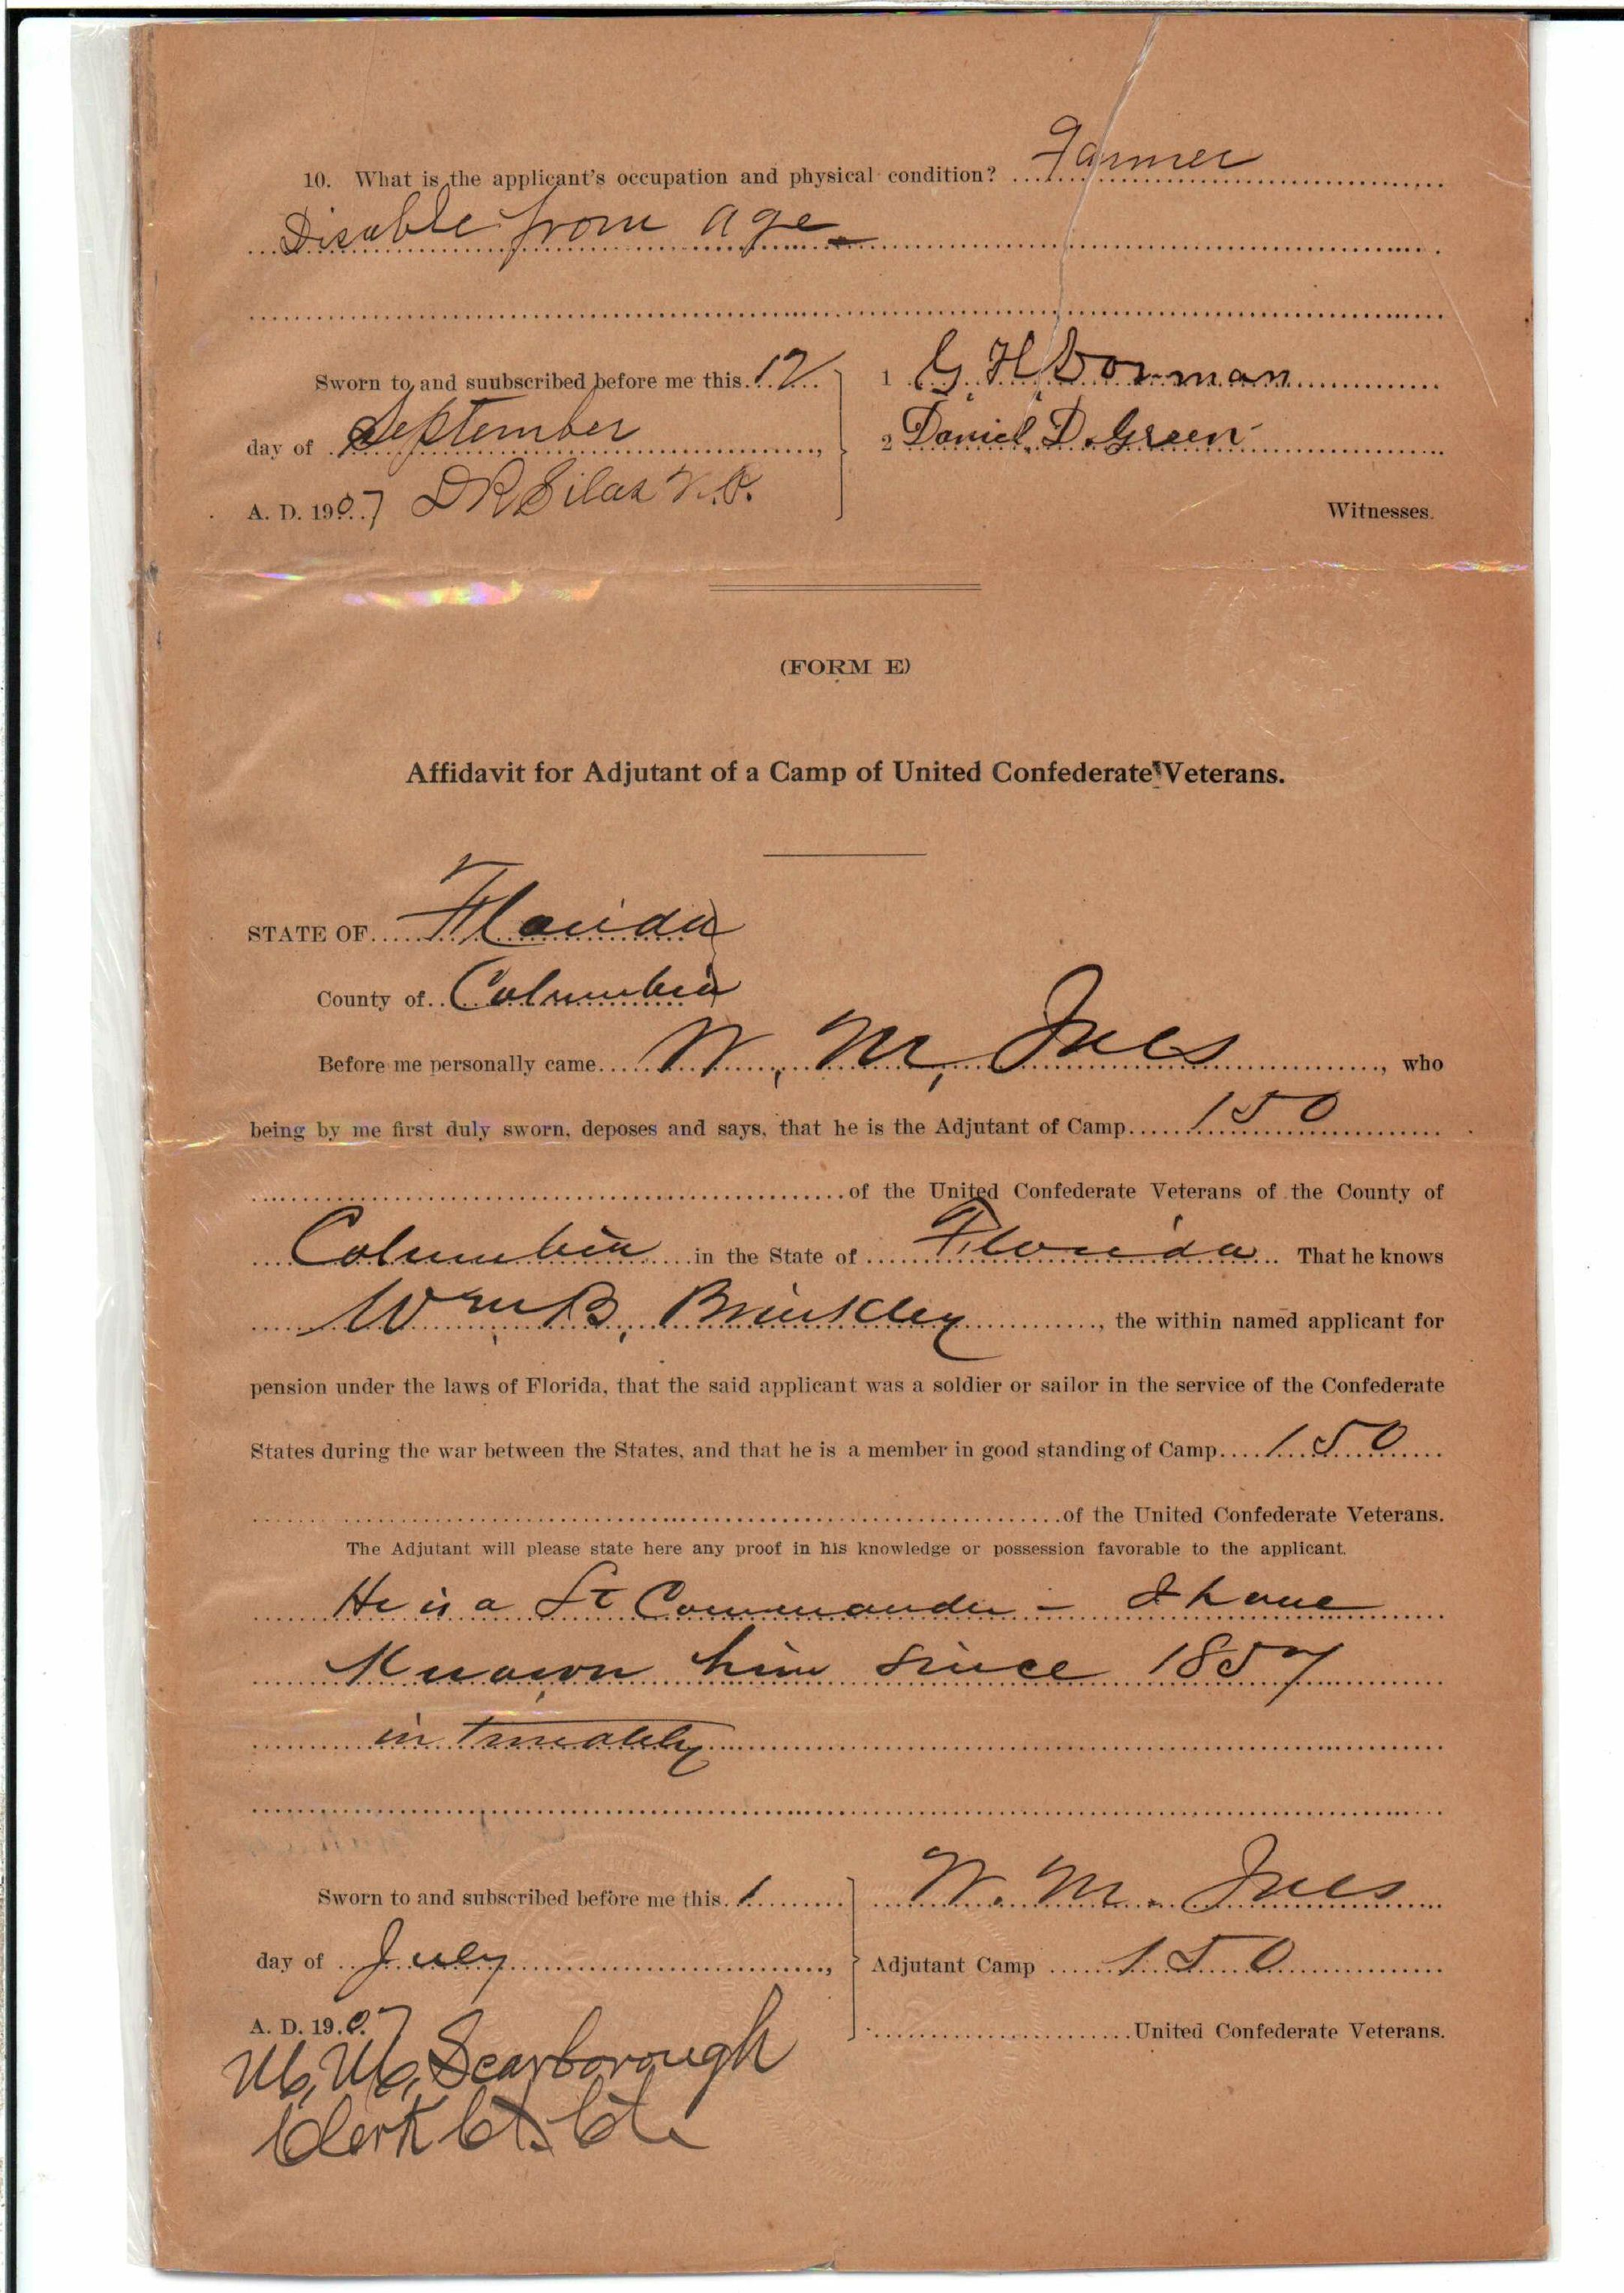 10. What is the applicant's occupation and physical condition? Farmer
Disable from age
Sworn to and suubscribed before me this 12
day of September,
A. D. 1907 D R Silas N. P.
1 G. H. Dorman
2 Daniel. D. Green
Witnesses.
(FORM E)
Affidavit for Adjutant of a Camp of United Confederate Veterans.
STATE OF Florida
County of Columbia
Before me personally came W. M. Ives, who
being by me first duly sworn, deposes and says, that he is the Adjutant of Camp 150
of the United Confederate Veterans of the County of
Columbia in the State of Florida. That he knows
Wm B. Brinkley, the within named applicant for
pension under the laws of Florida, that the said applicant was a soldier or sailor in the service of the Confederate
States during the war between the States, and that he is a member in good standing of Camp 150
of the United Confederate Veterans.
The Adjutant will please state here any proof in his knowledge or possession favorable to the applicant.
He is a Lt Commander - I have
Known him since 1857
intimately
Sworn to and subscribed before me this 1
day of July,
A. D. 1907
W. M. Ives
Adjutant Camp 150
United Confederate Veterans.
Scarborough
Clerk Ct. Ct.